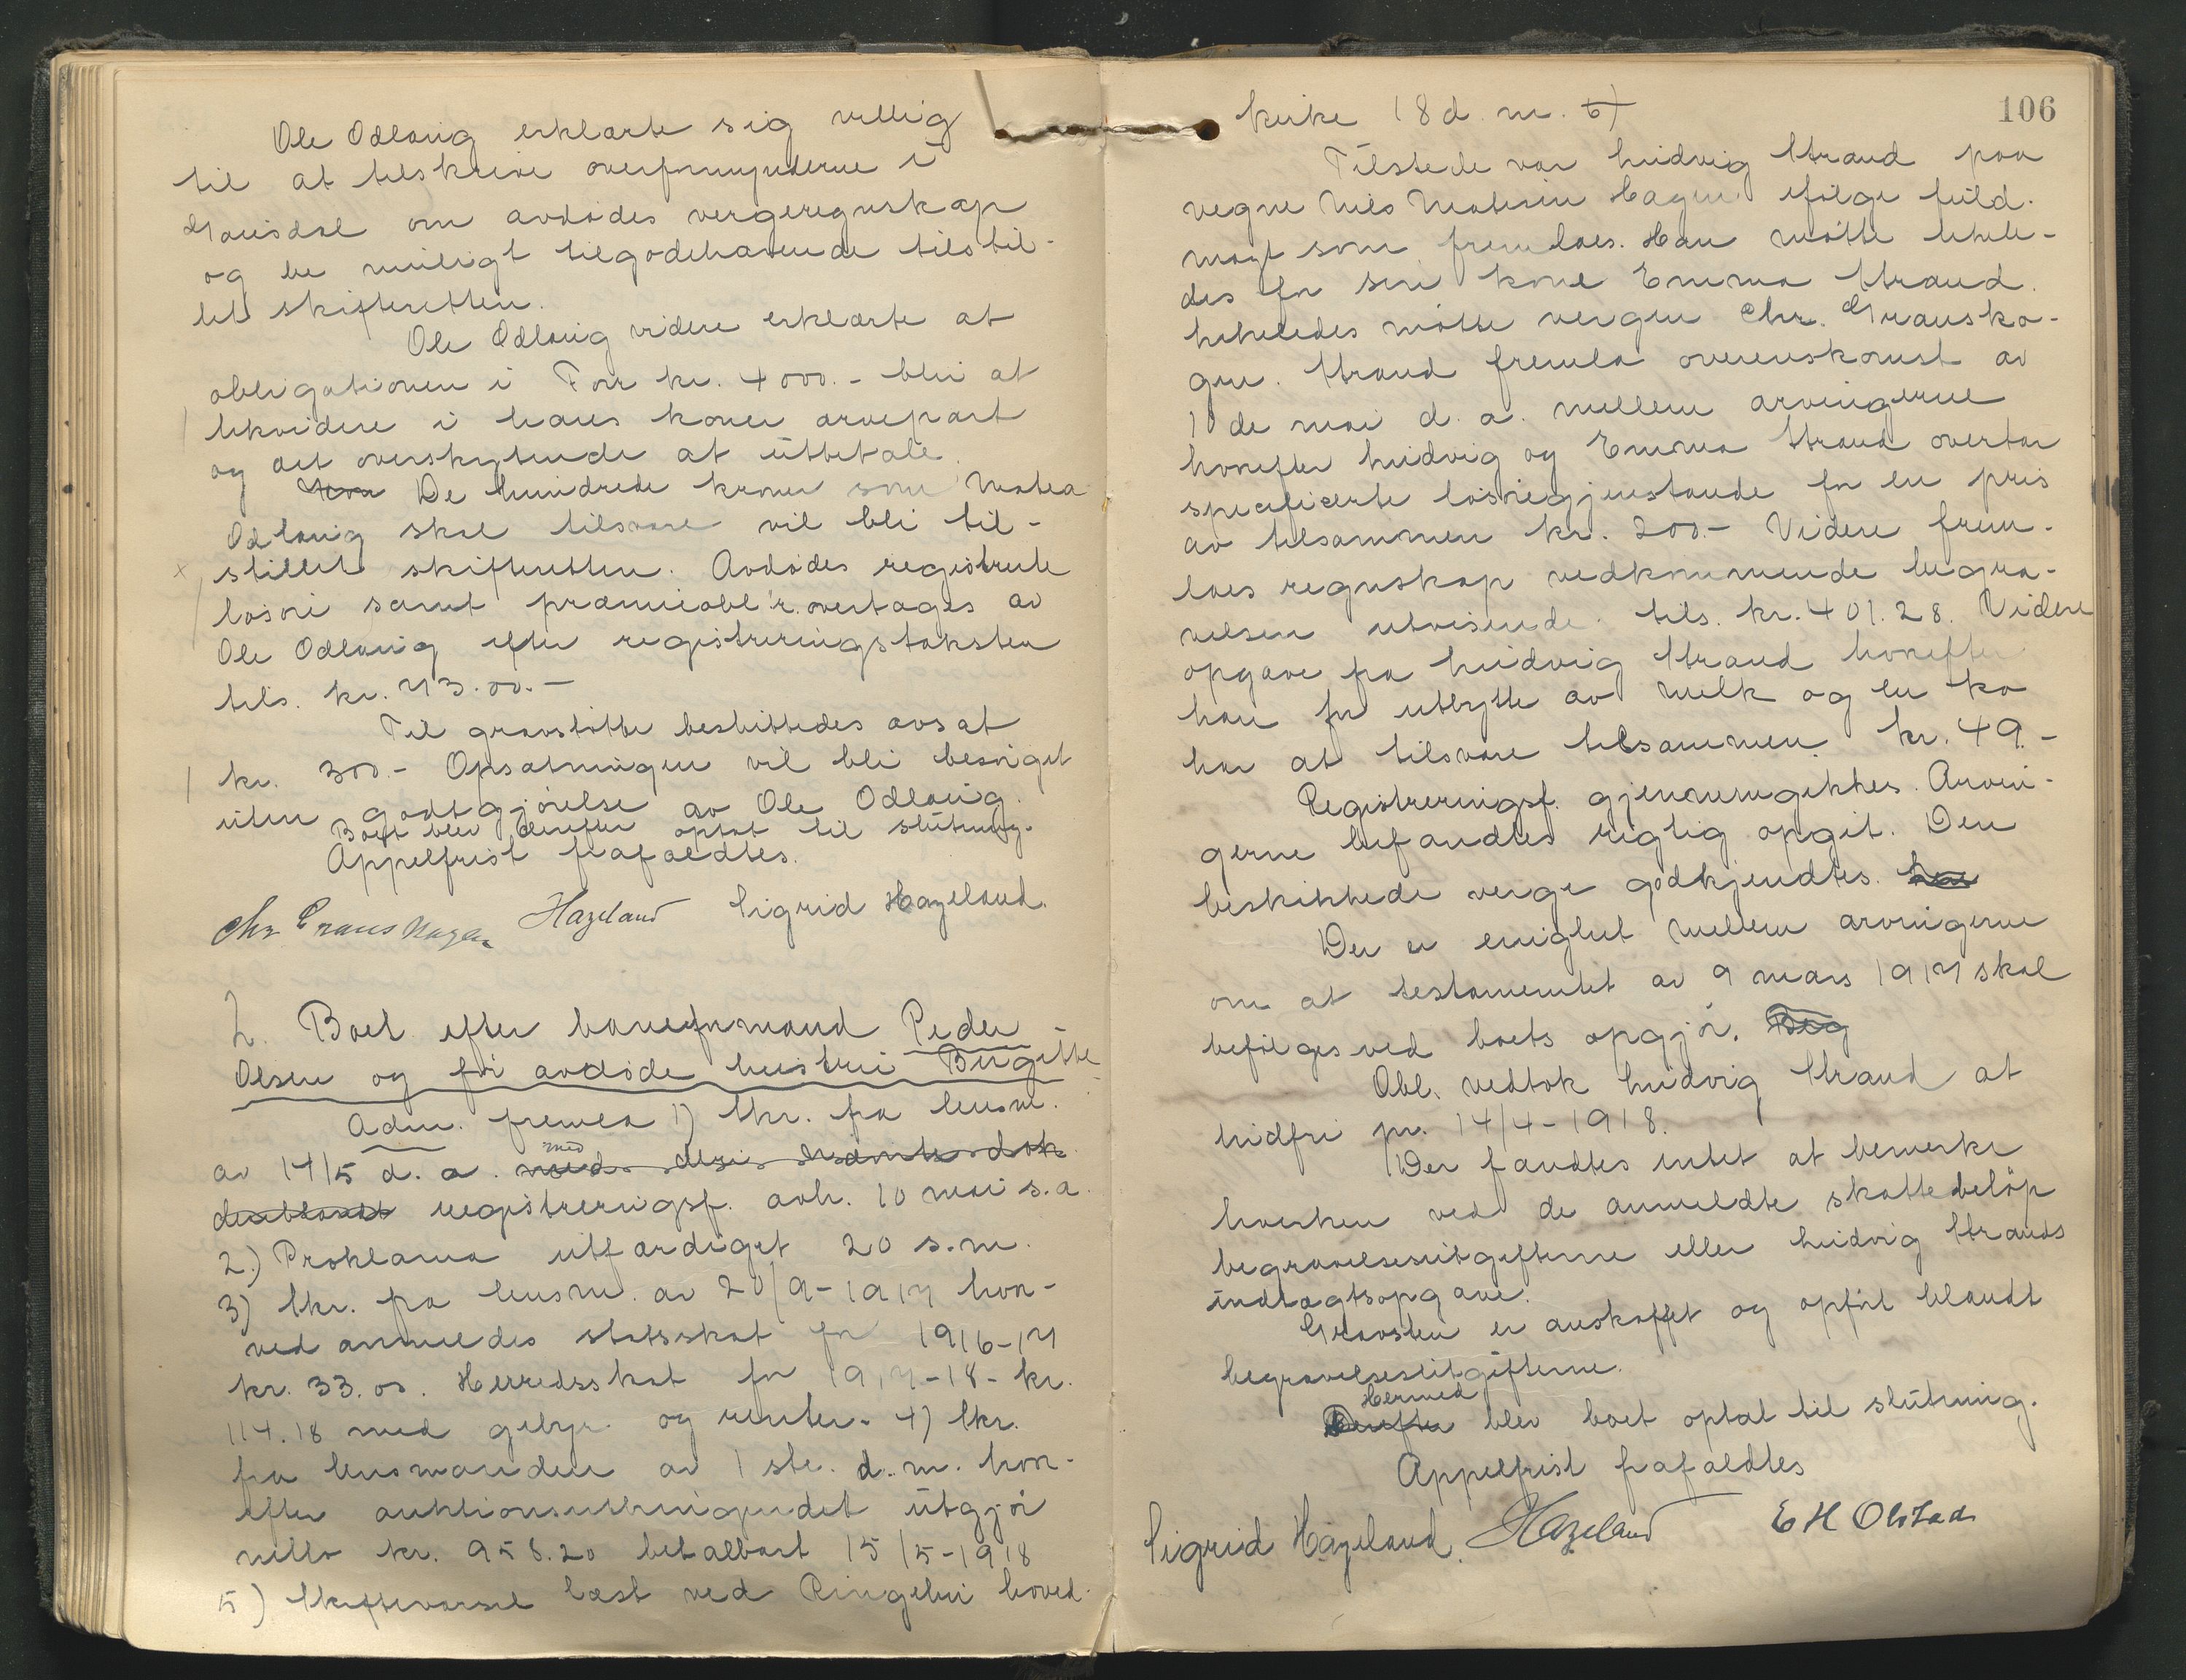 Ole Odlaug erklærte sig villig
til at tilskrive overformynderne i
Gausdal om avdødes vergeregnskap
og be muligt tilgodehavende tilstil-
let skifteretten.
Ole Odlaug videre erklærte at
obligationen i Forr kr. 4000.- blir at
likvidere i hans kones arvepart
og det overskytende at utbetale.
De hundrede kroner som Mathea
Odlaug skal tilsvare vil bli til-
stillet skifteretten. Avdødes registrerte
løsøre samt præmieobl'r. overtages av
Ole Odlaug efter registreringstaksten
tils. kr. 73.00.-
Til gravstøtte beslittedes avsat
kr. 300.- Opsætningen vil bli besørget
uten godtgjørelse av Ole Odlaug.
Boet blev derefter optat til slutning.
Appelfrist frafaldtes.
Chr Granskogen Hazeland Sigrid Hazeland.
2. Boet efter baneformand Peder
Olsen og før avdøde hustru Birgitte
Adm. fremla 1) Skr. fra lensm.
av 14/5 d. a. med
registreringsf. avh. 10 mai s.a.
2.) Proklama utfærdiget 20 s.m.
3) Skr. fra lensm. av 20/9-1917 hvor-
ved anmeldes statsskat for 1916-17
kr. 33.00. Herredsskat for 1917-18- kr.
114.18 med gebyr og renter. 4) Skr.
fra lensmanden av 1ste. d.m. hvor-
efter auktionsutbringendet utgjør
netto kr. 958.20 betalbart 15/5-1918
5) Skiftevarsel læst ved Ringebu hoved-
106
kirke 18 d. m. 6)
Tilstede var Ludvig Strand paa
vegne Nils Mathisen Hagen ifølge fuld-
magt som fremlaes. Han møtte likele-
des for sin kone Emma Strand.
Likeledes møtte vergen Chr. Gransko-
gen. Strand fremla overenskomst av
10de mai d. a. mellem arvingerne
hvorefter Ludvig og Emma Strand overtar
specificerte løsøregjenstande for en pris
av tilsammen kr. 200.- Videre frem-
laes regnskap vedkommende begra-
velsen utvisende tils. kr. 401.28. Videre
opgave fra Ludvig Strand hvorefter
han for utbytte av melk og en ko
har at tilsvare tilsammen kr. 49.-
Registreringsf. gjennemgikkes. Arvin-
gerne befandtes rigtig opgit. Den
beskikkede verge godkjendtes.
Der er enighet mellem arvingerne
om at testamentet av 9 mars 1917 skal
befølges ved boets opgjør.
Obl. vedtok Ludvig Strand at
indfri pr. 14/4-1918.
Der fandtes intet at bemerke
hverken ved de anmeldte skattebeløp
begravelsesutgifterne eller Ludvig Strands
indtægtsopgave.
Gravsten er anskaffet og opført blandt
begravelsesutgifterne.
Hermed
Derefter blev boet optat til slutning.
Appelfrist frafaldtes
Sigrid Hazeland. Hazeland E H Olstad